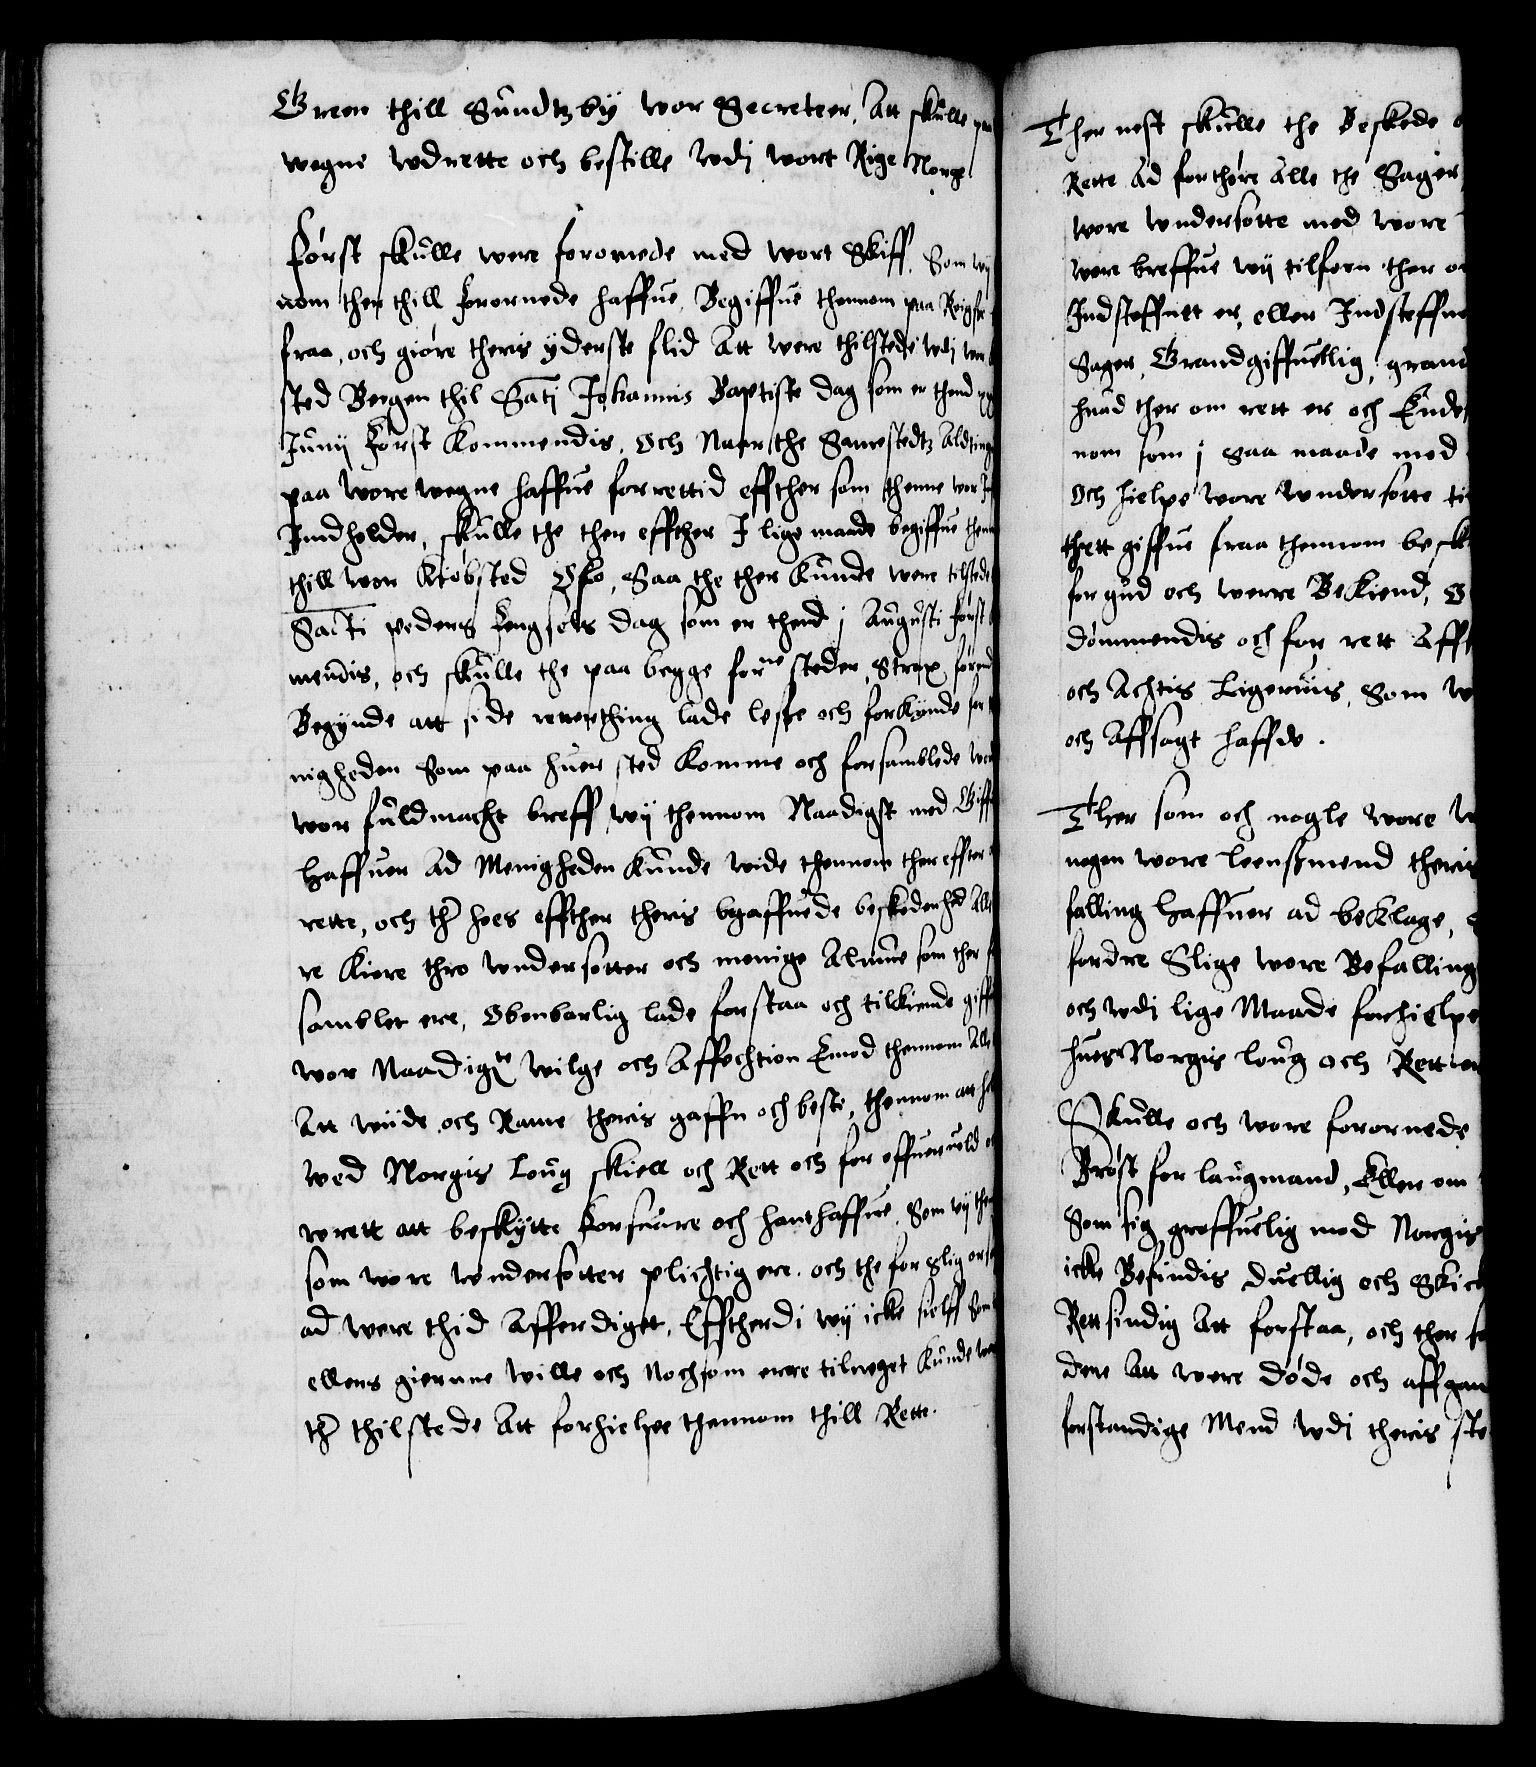 Green thill Sundtzby wor Secreteer, Att skulle paa
wegne wdrette och bestille wdj wort Rige Norge
Først skulle were forornede med wort Skiff, Som wy
nom ther thill forornede haffue, Begiffue thennom paa Reigsen
fraa, och giøre theris yderste flid Att were thilstede wdj wor
sted Bergen thil Sancti Johannis Baptiste dag som er thend
Junij Først Kommendis, Och Naar the Samestedtz Aldting
paa wore wegne haffue forrettid effther som thenne wor
Jndholder, skulle the ther effther J lige maade begiffue then
thill wor Kiøbsted Oslo, Saa the ther Kunde were tilstede
Sancti peders fengsels dag som er thend j Augusti først
mendis, och skulle the paa begge forne steder, Strax førend
Begynde att side retterthing lade lesse och forkynde for
nigheden Som paa huer sted Komme och forsamblede
wor fuldmacht breff wy thennom Naadigst med Giff
haffuer Ad Menigheden Kunde wide thennom ther effter
rette, och ther hoes effther theris begaffuede beskedenhed Alle
re Kiere thro wndersotter och menige Almue som ther
samblet ere, Obenbarlig lade forstaa och tilkiende giff
wor Naadigste wilge och Affechtion Emod thennom Alle
Att wiide och Rame theris gaffn och beste, thennom att
wed Norgis Loug skiell och Rett och for offueruold
wrett att beskytte Forsuare och hanthaffue, Som wy
som wore wndersotter plichtig ere, och the for slig
ad were thid Afferdiget, Efftherdi wy icke sielff Som
ellers gierne wille och Nochsom were tilreget Kunde
ther thilstede Att forhielpe thennom thill Rette.
Ther nest skulle the Beskede
Rette Ad forthøre Alle the Sager
wore wndersotte med wore
wore breffue wy tilforn ther
Jndsteffnet er, eller Jndsteffne
Sager, Grandgiffuellig, gran
huad ther om rett er och Ende
nom som j saa maade med
Och hielpe wore wndersotte til
thett giffue fraa thennom besk
for gud och werre Bekiend,
dømmendis och for rett Aff
och Achtis Ligeruiis, Som
och Affsagt haffde.
Ther som och nogle wore
nogen wore leenssmend theris
falling haffuer ad beklage,
fordre Slige wore Befalling
och wdj lige Maade forhielpe
hues Norgis loug och Rett
Skulle och wore forornede
Brøst for laugmand, Eller om
Som sig groffuelig mod Norgis
icke Befindis duellig och Skick
Rettsindig Att forstaa, och ther
dere Att were døde och affgan
forstandige Mend wdj theris ste